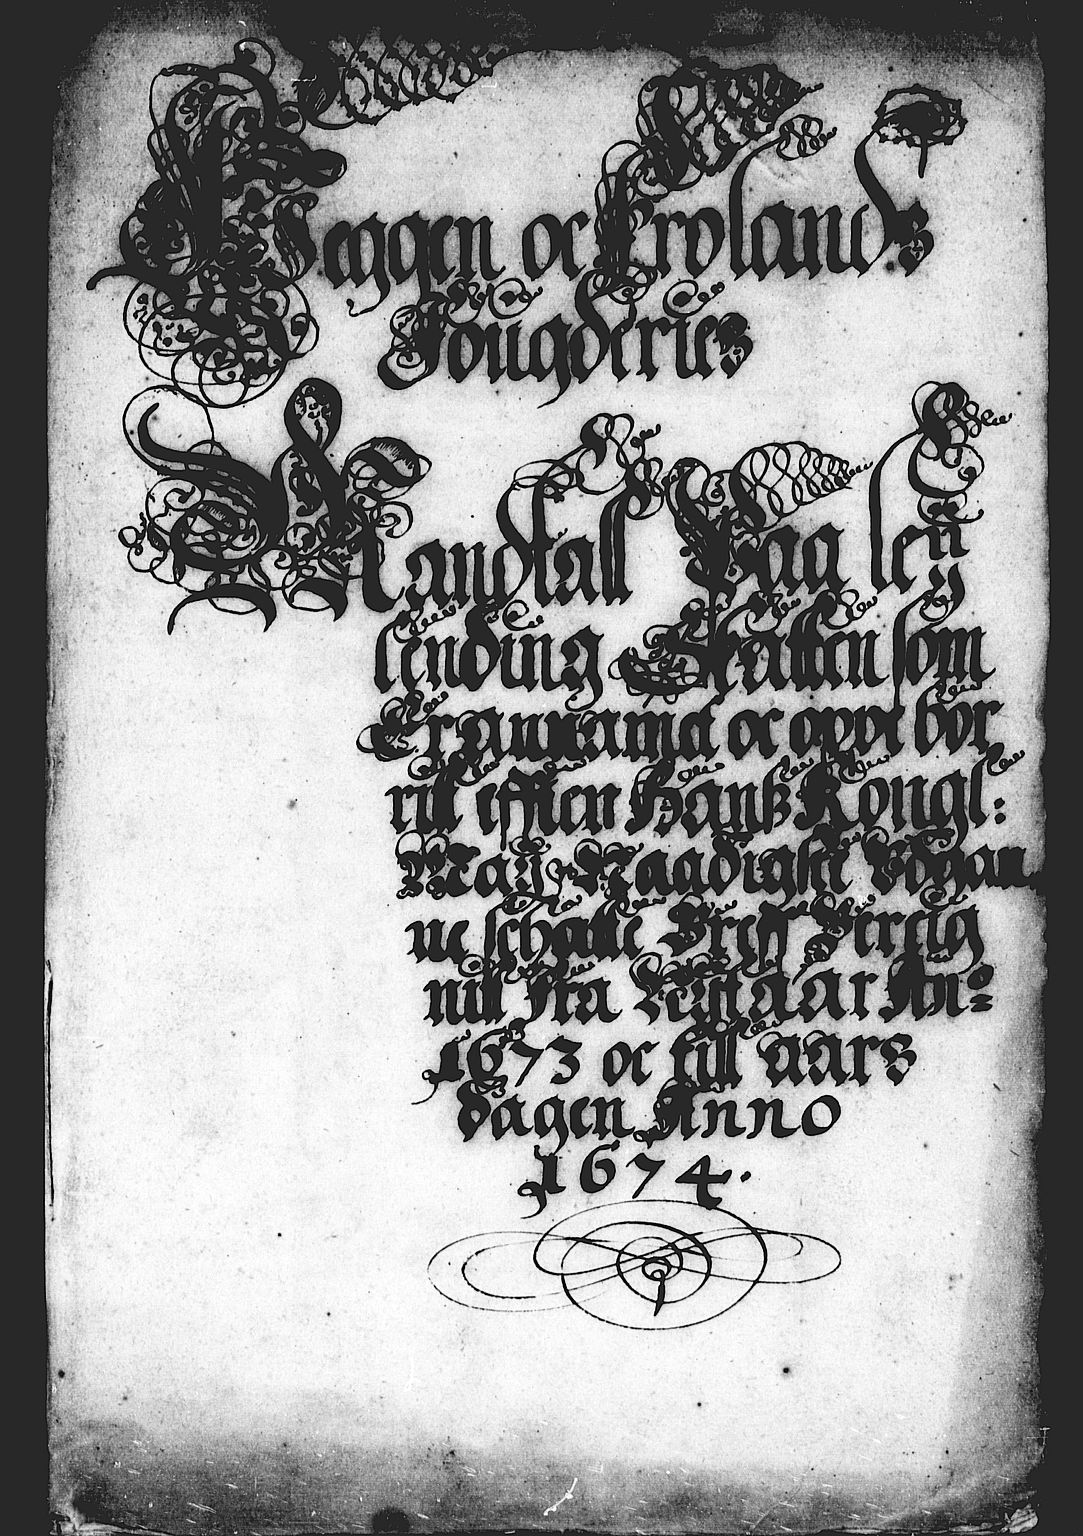 Heggen oc Frølands
Fougderies
Mandtall Paa ley
lending Skatten som
oc oppe bor
ritt ifften Hansz Kongl:
May: Naadigste Udgan
ne schatte Breff Bereig
nitt fra Nytaar An:
1673 oc till aars
dagen Anno
1674.